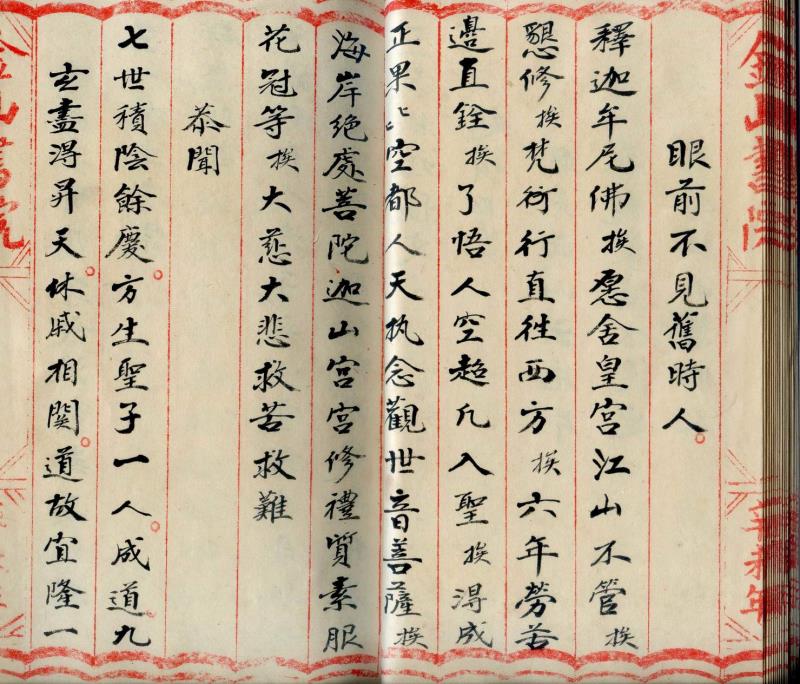 金山書院
眼前不見舊時人。
釋迦牟尼佛挨愿舍皇宮江山不管挨
懇修挨梵行直徃西方挨六年勞苦
邊直銓挨了悟人空超凢入聖挨淂成
正果空都人天执念觀世音菩薩挨
海岸绝處菩陀迦山宮宮修禮質素服
花冠等挨大慈大悲救苦救難
恭聞
七世積陰餘慶。方生聖子一人。成道。九
玄盡淂昇天。休戚相関。道故宜隆一